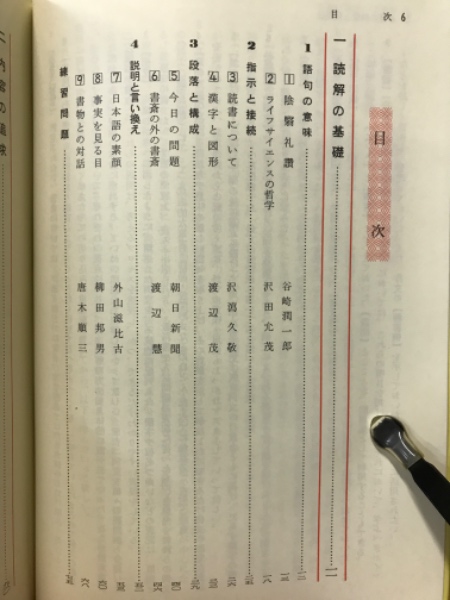 目 次 6
目 次
一 読解の基礎 一一
1 語句の意味
1 陰翳礼讃 谷崎潤一郎
2 ライフサイエンスの哲学 沢田允茂
2 指示と接続
3 読書について 沢瀉久敬
4 漢字と図形 渡辺茂
3 段落と構成
5 今日の問題 朝日新聞
6 書斎の外の書斎 渡辺慧
4 説明と言い換え
7 日本語の素顔 外山滋比古
8 事実を見る目 柳田邦男
9 書物との対話 唐木順三
練習問題